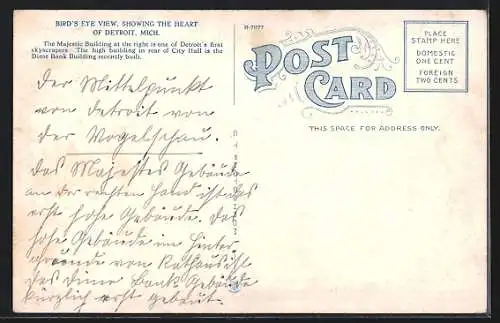 BIRD'S EYE VIEW, SHOWING THE HEART
OF DETROIT, MICH.
The Majestic Building at the right is one of Detroit's first
skyscrapers. The high building in rear of City Hall is the
Dime Bank Building recently built.
Der Mittelpunkt
von Detroit von
der Vogelschau.
Das Majestes Gebäude
an der rechten Hand ist das
erst hohe Gebäude. Das
hohe Gebäude im Hinter
grunde vom Rathaus ist
das dime Bank Gebäude
kürzlich erst gebaut.
H-7077
POST
CARD
PLACE
STAMP HERE
DOMESTIC
ONE CENT
FOREIGN
TWO CENTS
THIS SPACE FOR ADDRESS ONLY.